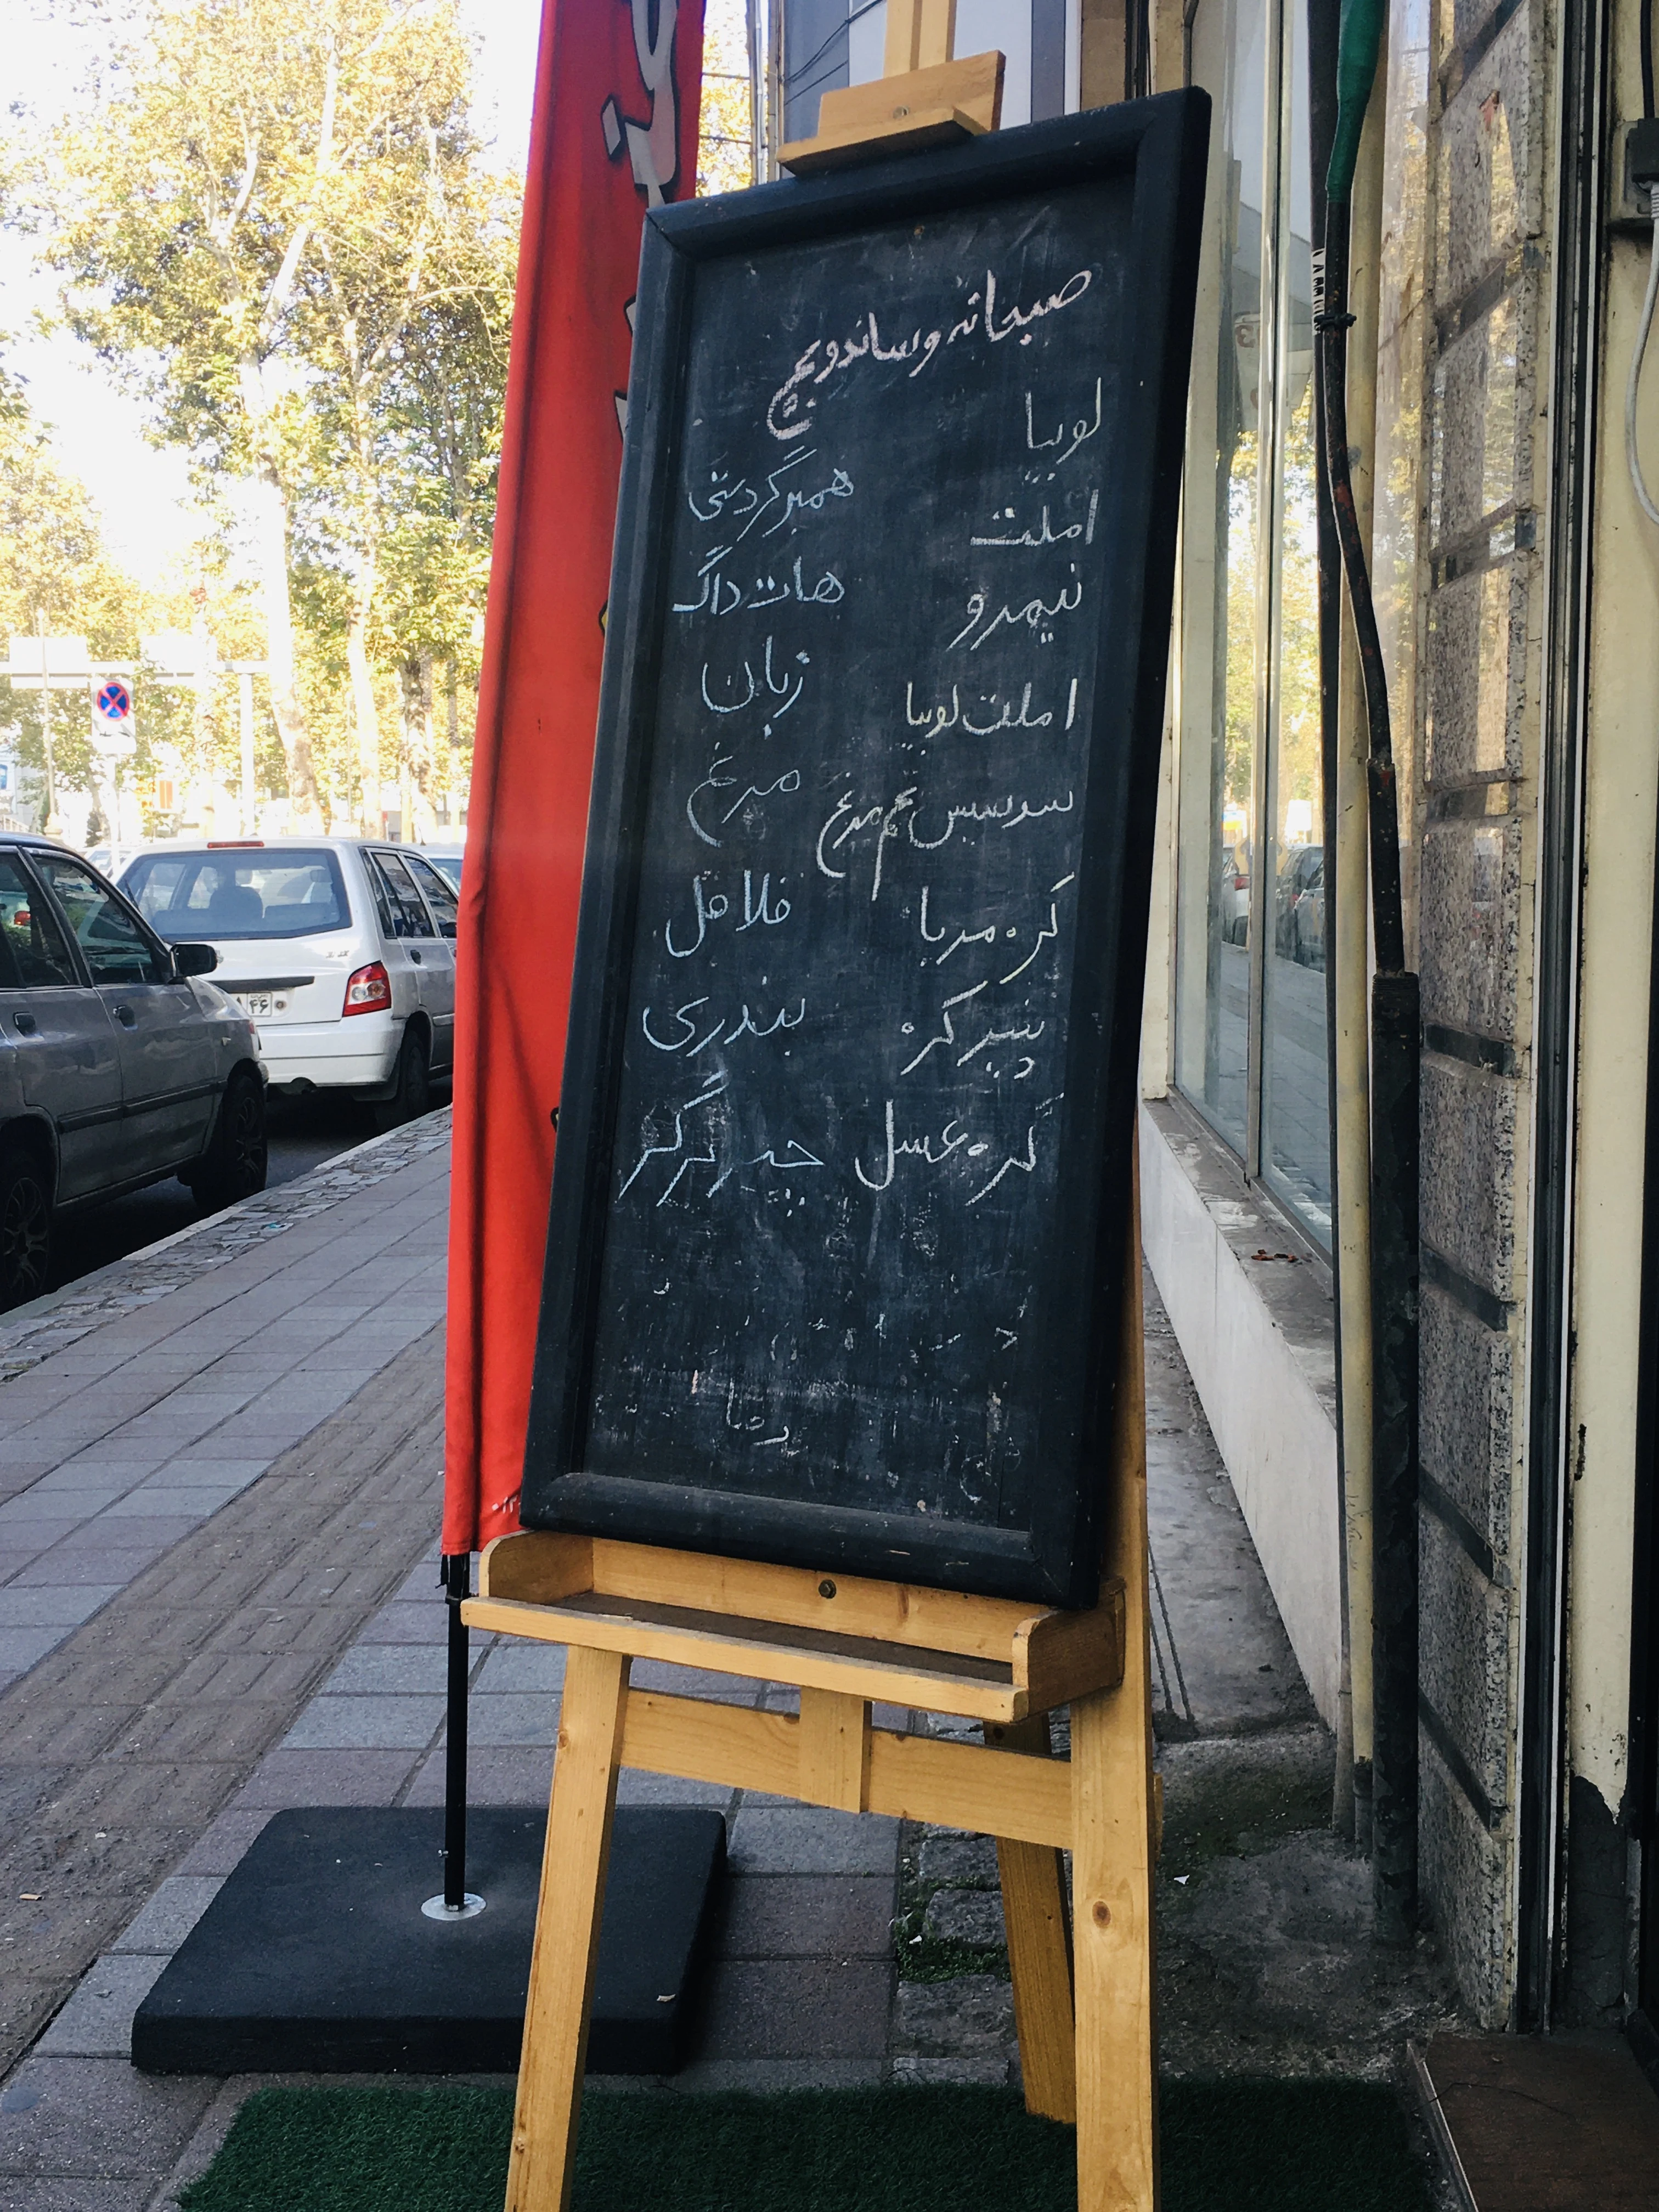 صبحانه و ساندویچ
لوبیا
املت
نیمرو
املت لوبیا
سوسیس تخم مرغ
کره مربا
پنیر کره
کره عسل
همبرگر دستی
هات داگ
زبان
مرغ
فلافل
بندری
چیز برگر